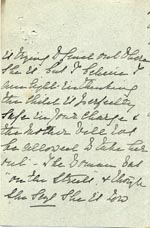 is trying to find out where
she is but I believe I
am right in thinking
the child is perfectly
safe in your charge &
the mother will not
be allowed to take her
out - The woman was
"on the streets" &
she says she is now